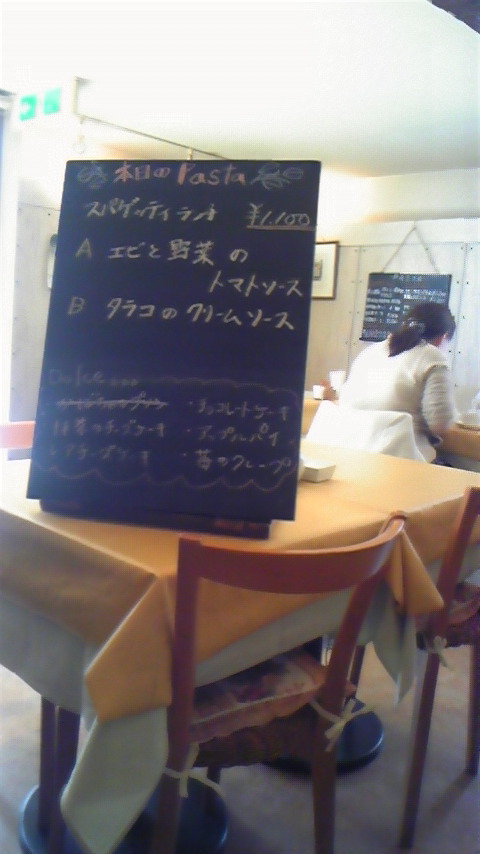 本日のPasta
スパゲッティランチ ¥1,100
A エビと野菜の
トマトソース
B タラコのクリームソース
Dolce...
・チョコレートケーキ
抹茶のチーズケーキ ・アップルパイ
レアチーズケーキ ・苺のクレープ